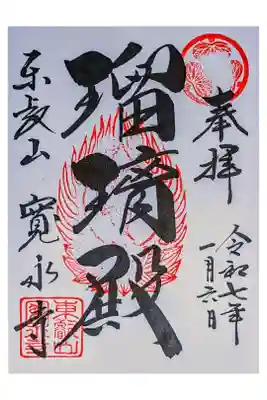 奉拝
令和七年
一月六日
瑠璃殿
东叡山 寛永寺
東叡山
寛永寺